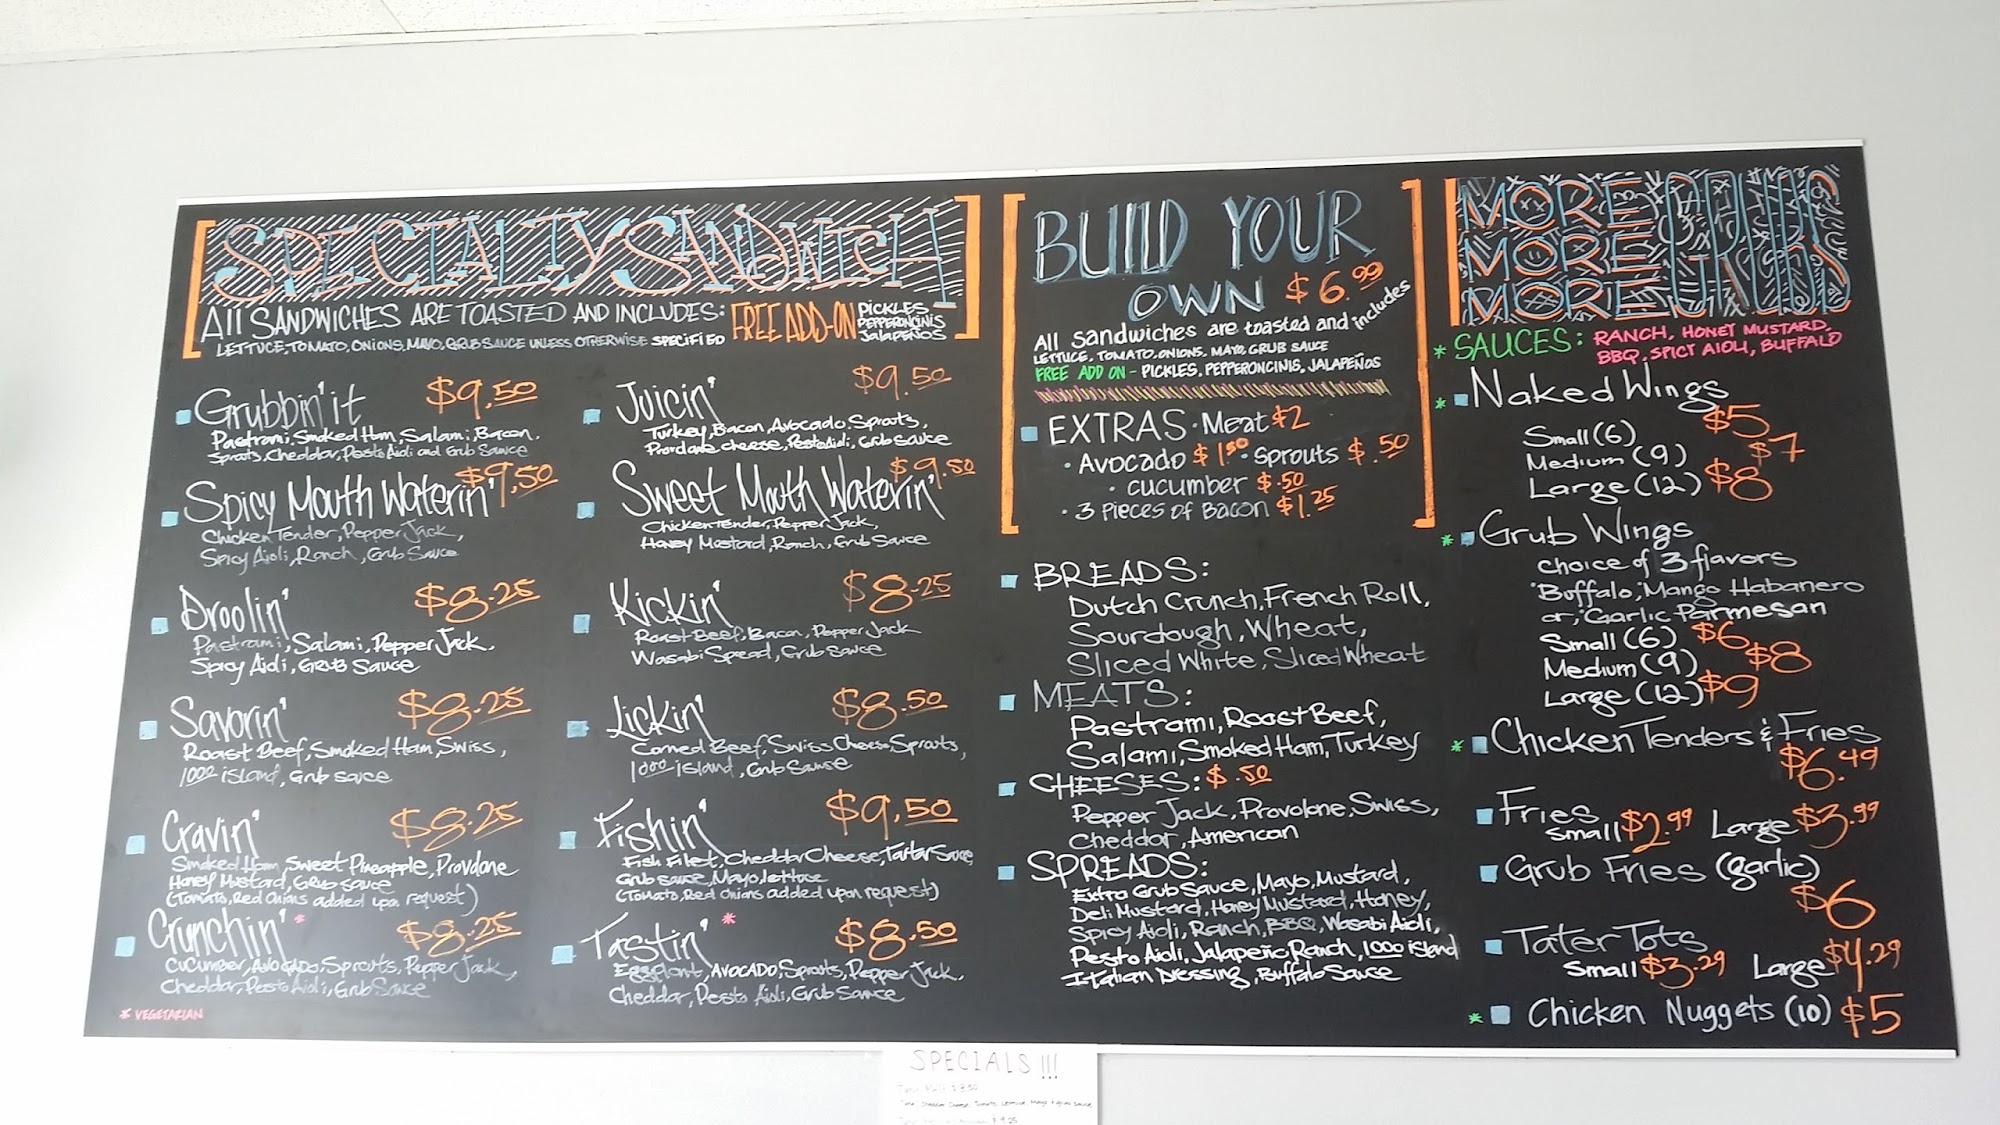 SPECIALTY SANDWICH
All SANDWICHES ARE TOASTED AND INCLUDES:
LETTUCE, TOMATO, ONIONS, MAYO, GRUB SAUCE UNLESS OTHERWISE SPECIFIED
FREE ADD-ON
PICKLES
PEPPERONCINIS
JALAPEÑOS
Grubbin' it $9.50
Pastrami, Smoked Ham, Salami, Bacon,
Sprouts, Cheddar, Pesto Aioli and Grub Sauce
Spicy Mouth Waterin' $9.50
Chicken Tender, Pepper Jack,
Spicy Aioli, Ranch, Grub Sauce
Droolin' $8.25
Pastrami, Salami, Pepper Jack,
Spicy Aioli, GRUB Sauce
Savorin' $8.25
Roast Beef, Smoked Ham, Swiss,
1000 island, Grub sauce
Cravin' $8.25
Smoked Ham, Sweet Pineapple, Provolone
Honey Mustard, Grub sauce
(Tomato, Red Onions added upon request)
Crunchin' * $8.25
Cucumber, Avocado, Sprouts, Pepper Jack,
Cheddar, Pesto Aioli, Grub Sauce
* VEGETARIAN
Juicin' $9.50
Turkey, Bacon, Avocado, Sprouts,
Provolone cheese, Pesto Aioli, Grub Sauce
Sweet Mouth Waterin' $9.50
Chicken Tender, Pepper Jack,
Honey Mustard, Ranch, Grub Sauce
Kickin' $8.25
Roast Beef, Bacon, Pepper Jack
Wasabi Spread, Grub Sauce
Lickin' $8.50
Corned Beef, Swiss Cheese, Sprouts,
1000 island, Grub Sauce
Fishin' $9.50
Fish Filet, Cheddar Cheese, Tartar Sauce,
Grub sauce, Mayo, lettuce
(Tomato, Red Onions added upon request)
Tastin' * $8.50
Eggplant, AVOCADO, Sprouts, Pepper Jack,
Cheddar, Pesto Aioli, Grub Sauce
BUILD YOUR
OWN $6.99
All sandwiches are toasted and includes
LETTUCE, TOMATO, ONIONS, MAYO, GRUB SAUCE
FREE ADD ON - PICKLES, PEPPERONCINIS, JALAPEÑOS
EXTRAS · Meat $2
· Avocado $1.50 · Sprouts $.50
· cucumber $.50
· 3 pieces of Bacon $1.25
BREADS:
Dutch Crunch, French Roll,
Sourdough, Wheat,
Sliced White, Sliced Wheat
MEATS:
Pastrami, Roast Beef,
Salami, Smoked Ham, Turkey
CHEESES: $.50
Pepper Jack, Provolone, Swiss,
Cheddar, American
SPREADS:
Extra Grub Sauce, Mayo, Mustard,
Deli Mustard, Honey Mustard, Honey,
Spicy Aioli, Ranch, BBQ, Wasabi Aioli,
Pesto Aioli, Jalapeño Ranch, 1000 island
Italian Dressing, Buffalo Sauce
MORE GRUB
MORE GRUB
MORE GRUB
* SAUCES: RANCH, HONEY MUSTARD,
BBQ, SPICY AIOLI, BUFFALO
* Naked Wings
Small (6) $5
Medium (9) $7
Large (12) $8
* Grub Wings
choice of 3 flavors
Buffalo, Mango Habanero
or, Garlic Parmesan
Small (6) $6
Medium (9) $8
Large (12) $9
* Chicken Tenders & Fries
$6.49
Fries
Small $2.99 Large $3.99
Grub Fries (garlic)
$6
Tater Tots
Small $3.29 Large $4.29
* Chicken Nuggets (10) $5
SPECIALS!!!